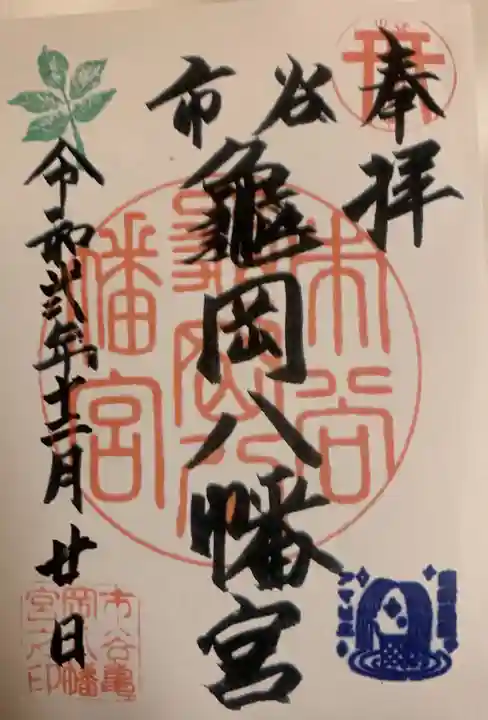 奉拝
市谷
龜岡八幡宮
令和弐年十二月廿日
市谷
亀岡八
幡宮
市谷亀
岡八幡
宮之印